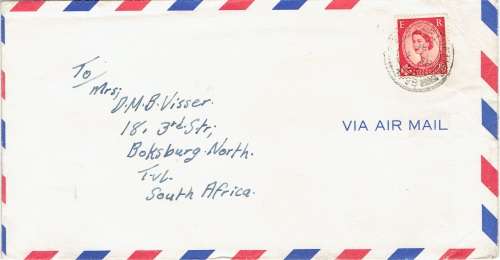 E R
To
Mrs;
D.M.B. Visser.
18. 3rd. Str;
Boksburg. North.
Tvl.
South Africa.
VIA AIR MAIL